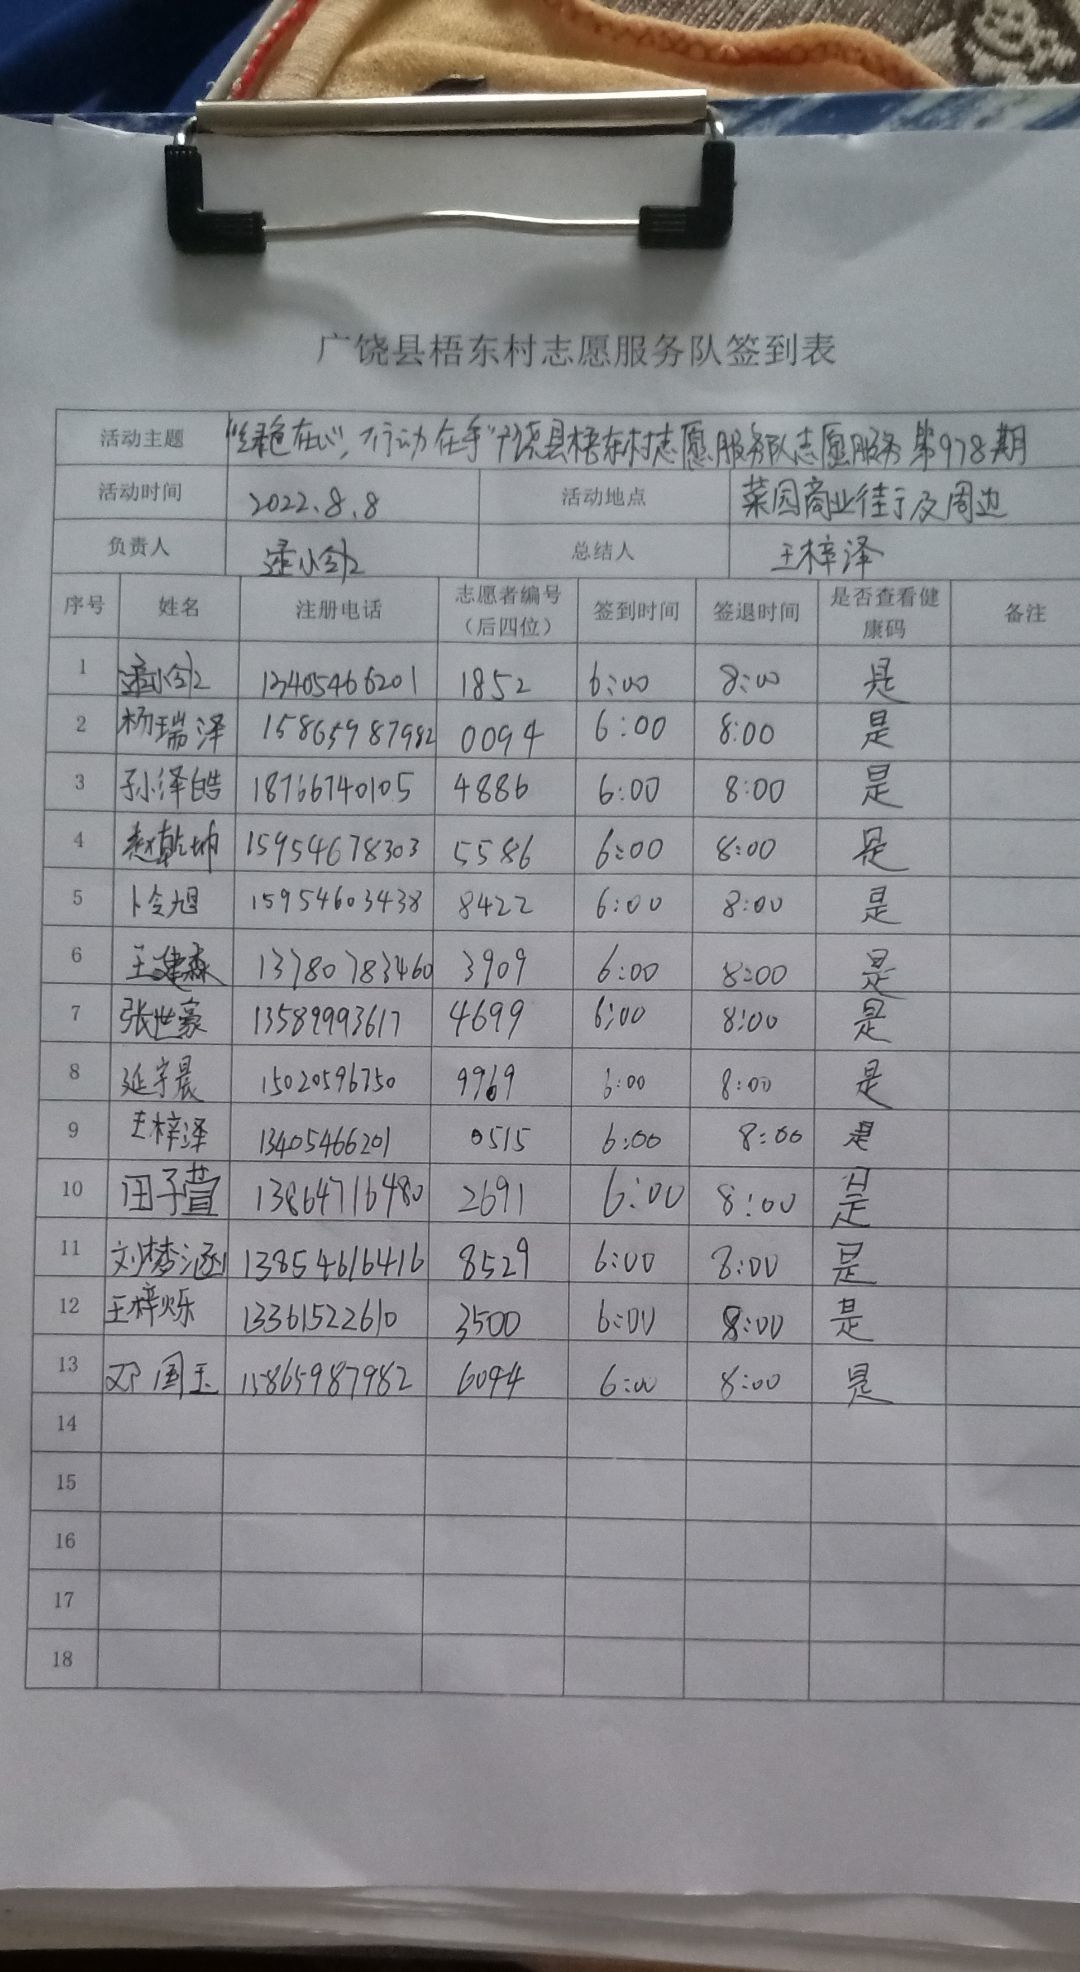 广饶县梧东村志愿服务队签到表
活动主题 “绿色在心”,“行动在手”广饶县梧东村志愿服务队志愿服务第978期
活动时间 2022.8.8 活动地点 菜园商业街于及周边
负责人 总结人 王梓泽
序号 姓名 注册电话 志愿者编号（后四位） 签到时间 签退时间 是否查看健康码 备注
1 13405466201 1852 6:00 8:00 是
2 杨瑞泽 15865987982 0094 6:00 8:00 是
3 孙泽皓 18766740105 4886 6:00 8:00 是
4 赵乾坤 15954678303 5586 6:00 8:00 是
5 卜令旭 15954603438 8422 6:00 8:00 是
6 王建森 13780783460 3909 6:00 8:00 是
7 张世豪 13589993617 4699 6:00 8:00 是
8 延宇晨 15020596750 9969 6:00 8:00 是
9 王梓泽 13405466201 0515 6:00 8:00 是
10 田子萱 13864716480 2691 6:00 8:00 是
11 刘梦涵 13854616416 8529 6:00 8:00 是
12 王梓烁 13361522610 3500 6:00 8:00 是
13 邓国玉 15865987982 6094 6:00 8:00 是
14
15
16
17
18